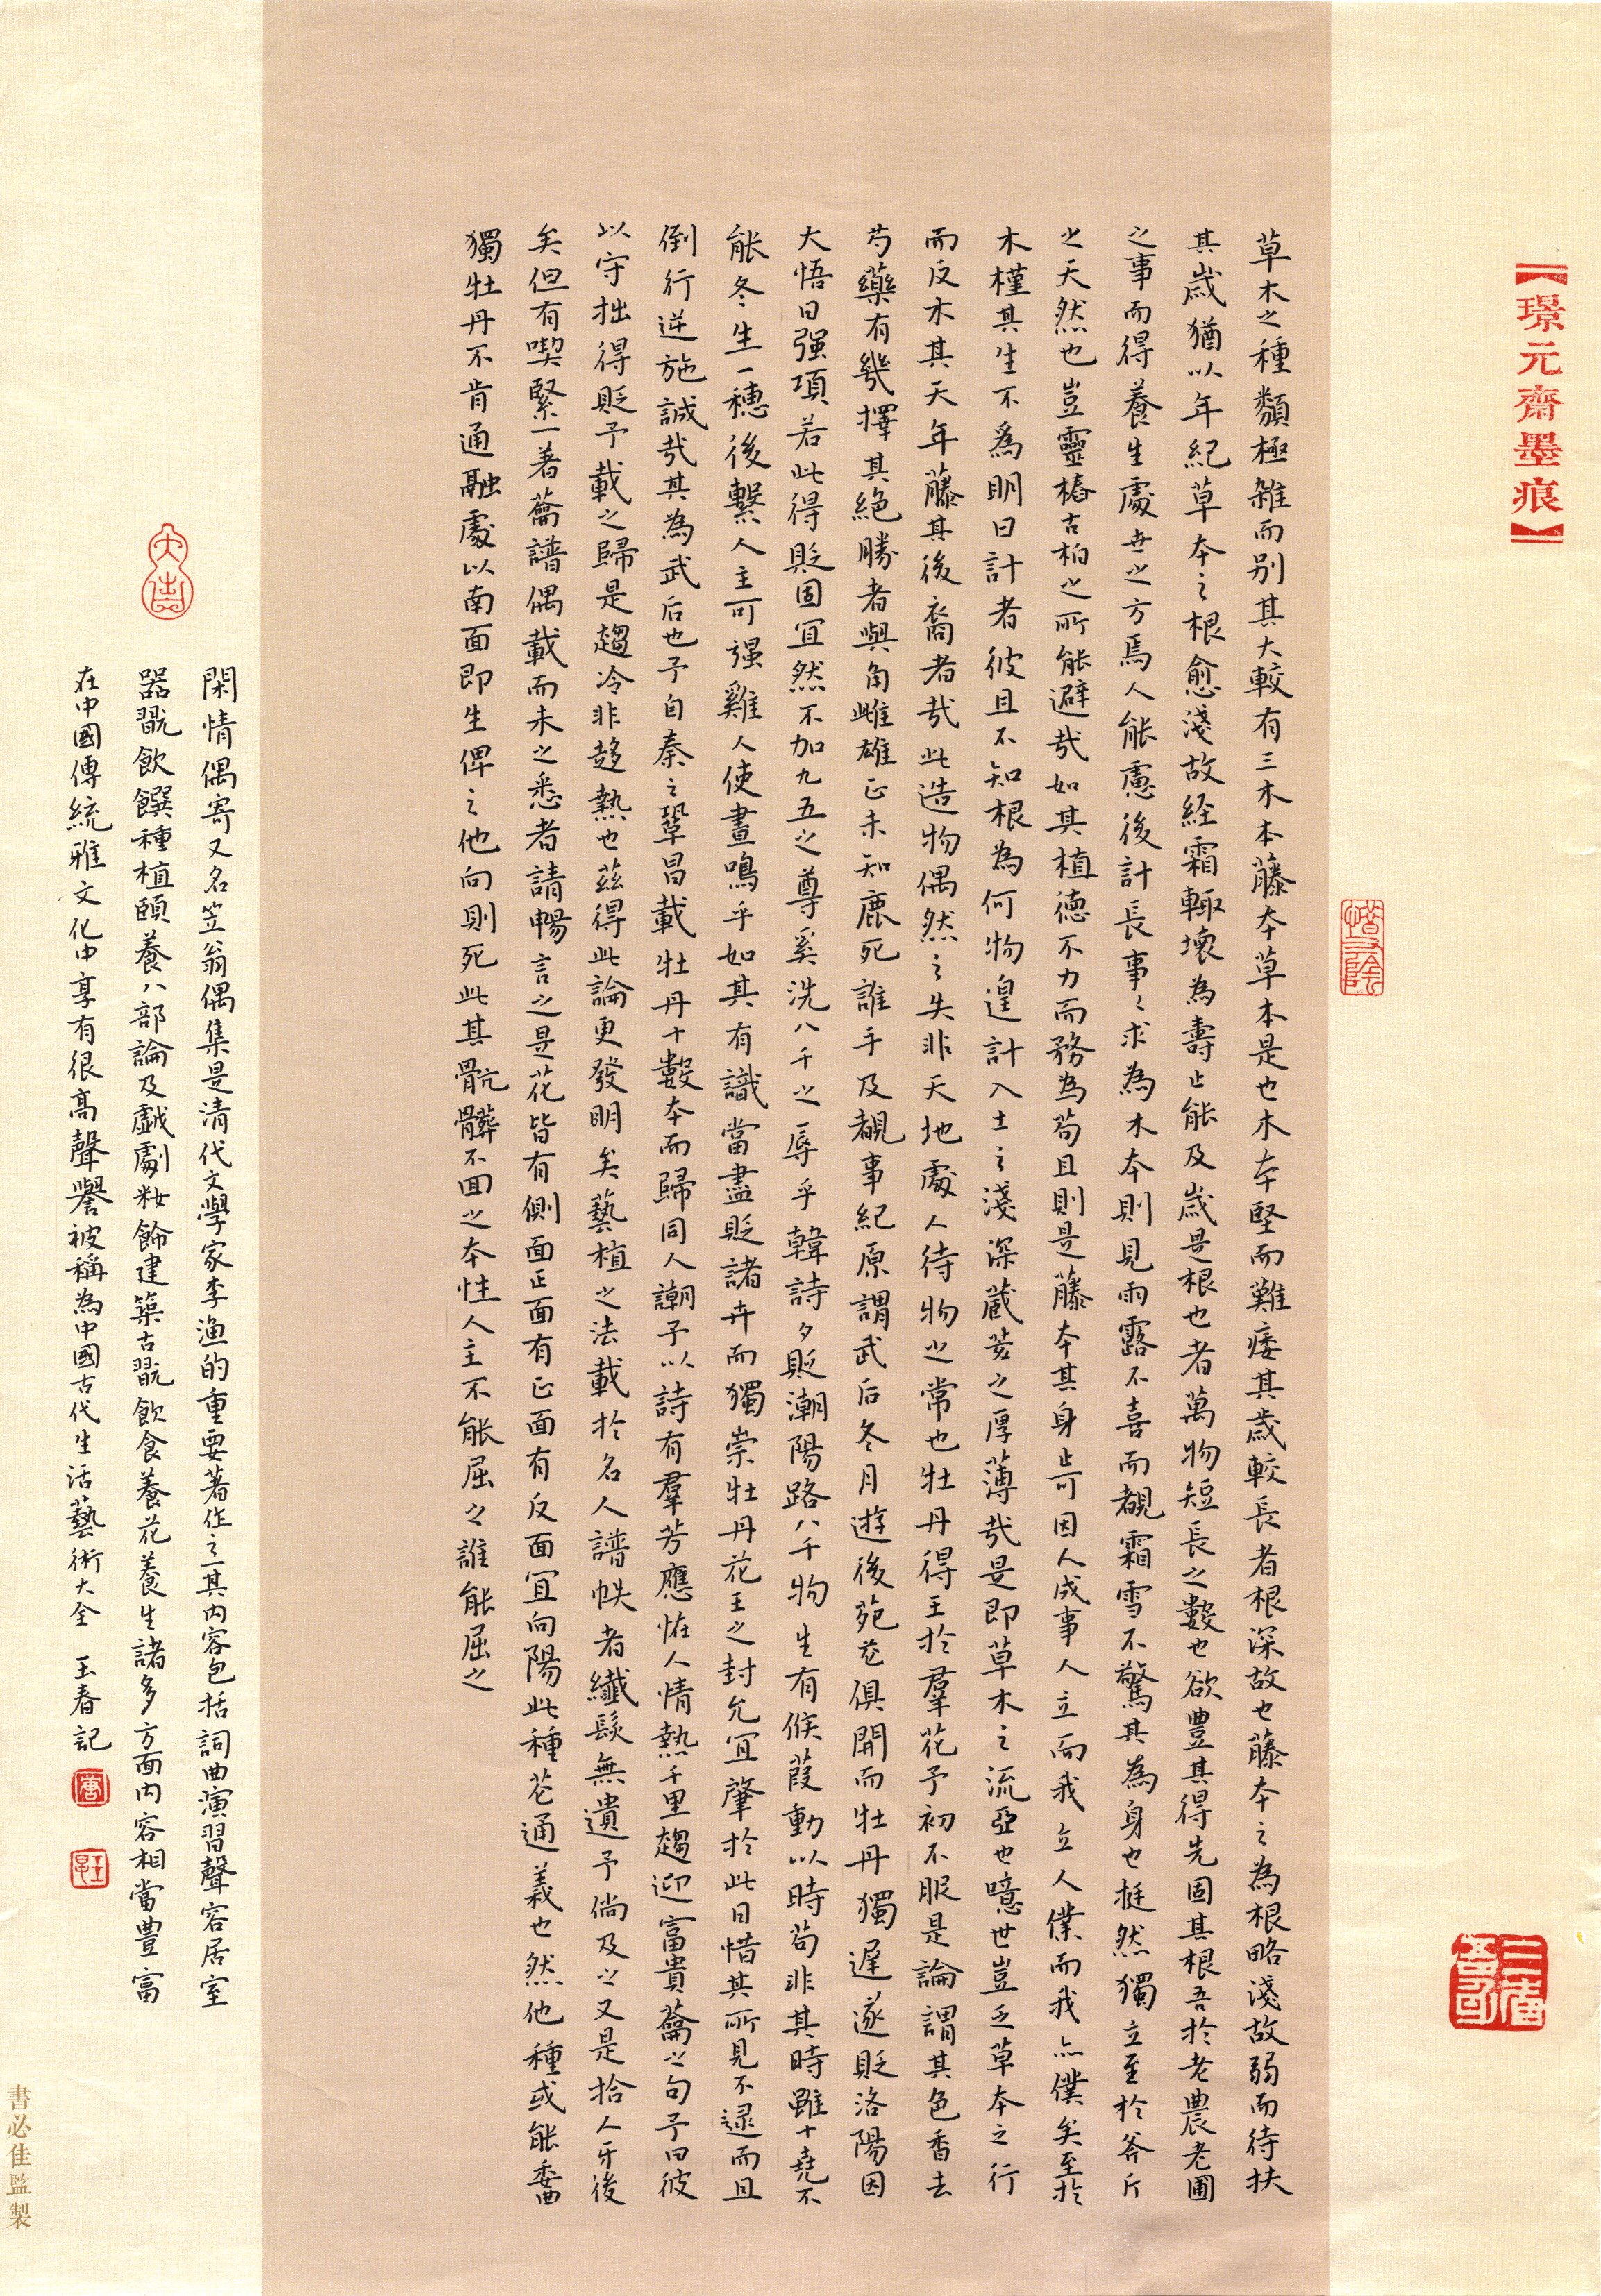 【璟元齋墨痕】
草木之種類極雜而别其大較有三木本藤本草本是也木本堅而難痿其歲較長者根深故也藤本之為根略淺故弱而待扶
其歲猶以年紀草本之根愈淺故經霜輒壞為壽止能及歲是根也者萬物短長之數也欲豐其得先固其根吾於老農老圃
之事而得養生處世之方焉人能慮後計長事々求為木本則見雨露不喜而覩霜雪不驚其為身也挺然獨立至於斧斤
之天然也豈靈椿古柏之所能避哉如其植德不力而務為苟且則是藤本其身止可因人成事人立而我立人僕而我亦僕矣至於
木槿其生不爲明日計者彼且不知根為何物遑計入土之淺深藏荄之厚薄哉是即草木之流亞也噫世豈乏草本之行
而反木其天年藤其後裔者哉此造物偶然之失非天地處人待物之常也牡丹得王於羣花予初不服是論謂其色香去
芍藥有幾擇其絕勝者與角雌雄正未知鹿死誰手及覩事紀原謂武后冬月遊後苑花俱開而牡丹獨遲遂貶洛陽因
大悟曰强項若此得貶固宜然不加九五之尊奚洗八千之辱乎韓詩夕貶潮陽路八千物生有候葭動以時苟非其時雖十堯不
能冬生一穗後繫人主可强雞人使晝鳴乎如其有識當盡貶諸卉而獨崇牡丹花王之封允宜肇於此日惜其所見不逮而且
倒行逆施誠哉其為武后也予自秦之鞏昌載牡丹十數本而歸同人謿予以詩有羣芳應怪人情熱千里趨迎富貴花之句予曰彼
以守拙得貶予載之歸是趨冷非趍熱也茲得此論更發明矣藝植之法載於名人譜帙者纖髮無遺予倘及之又是拾人牙後
矣但有喫緊一著花譜偶載而未之悉者請暢言之是花皆有側面正面有正面有反面宜向陽此種花通義也然他種或能委曲
獨牡丹不肯通融處以南面即生俾之他向則死此其骯髒不回之本性人主不能屈之誰能屈之
閑情偶寄又名笠翁偶集是清代文學家李漁的重要著作之一其内容包括詞曲演習聲容居室
器翫飲饌種植頤養八部論及戲劇妝飾建築古翫飲食養花養生諸多方面内容相當豐富
在中國傳統雅文化中享有很高聲譽被稱為中國古代生活藝術大全 玉春記
書必佳監製